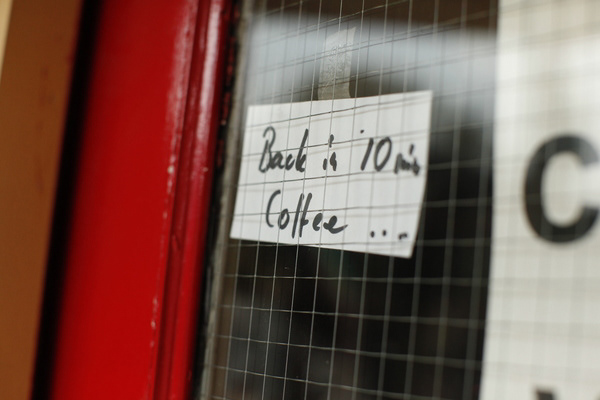 Back in 10 min
Coffee ...
C